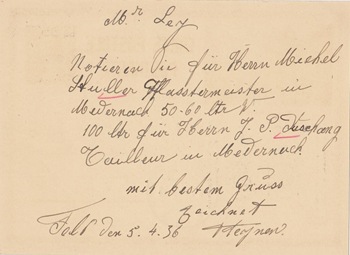 Mr Ley
Notieren Sie für Herrn Michel
Huller Plastermeister in
Medernach 50-60 ltr V.
100 ltr für Herrn J. P. Tuschang
Tailleur in Medernach
mit bestem Gruss
zeichnet
den 5. 4. 36 Heynen.